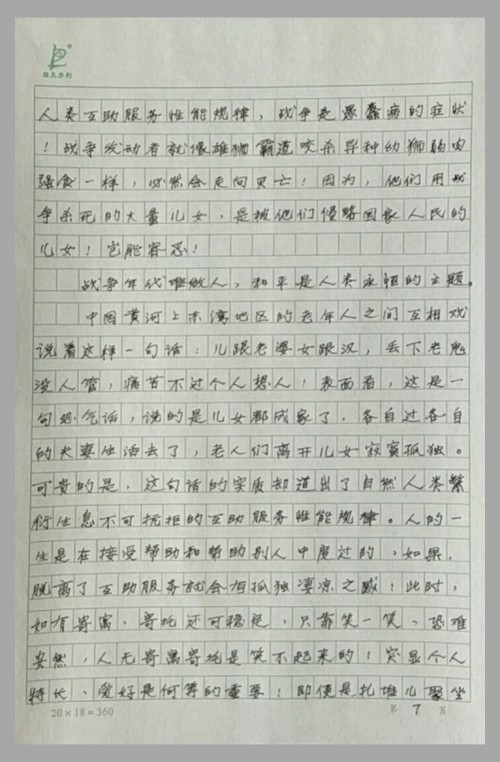 人类互助服务性能规律，战争是愚蠢病的症状
！战争发动者就像雄狮霸道咬杀异种幼狮弱肉
强食一样，必然会走向灭亡！因为，他们用战
争杀死的大量儿女，是被他们侵略国家人民的
儿女！岂能容忍！
战争年代难做人，和平是人类永恒的主题。
中国黄河上末湾地区的老年人之间互相戏
说着这样一句话：儿跟老婆女跟汉，丢下老鬼
没人管，痛苦不过个人想人！表面看，这是一
句怨气话，说的是儿女都成家了，各自过各自
的夫妻生活去了，老人们离开儿女寂寞孤独。
可贵的是，这句话的实质却道出了自然人类繁
衍生息不可抗拒的互助服务性能规律。人的一
生是在接受帮助和帮助别人中度过的，如果，
脱离了互助服务就会有孤独凄凉之感！此时，
如有寄寓、寄托还可稳定，只靠笑一笑，恐难
安然，人无寄寓寄托是笑不起来的！突显个人
特长、爱好是何等的重要！即便是扎堆儿聚坐
20×18=360
第 7 页